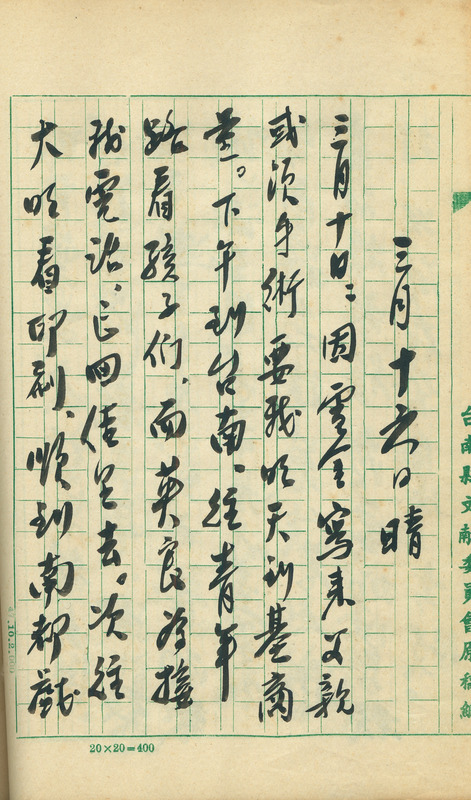 台南縣文獻委員會原稿紙
三月十六日晴
三月十日,因雪金寫來父親
或須手術要我明天到基商
量。下午到台南、經青年
路看孩子們、而英良為接
我電話、已回佳里去。次經
大明看印刷、順到南都戲
20×20=400